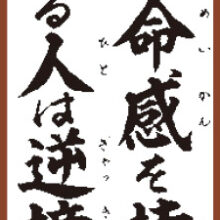 命感を持
めいかん
る人は逆境
ひと ぎゃっき